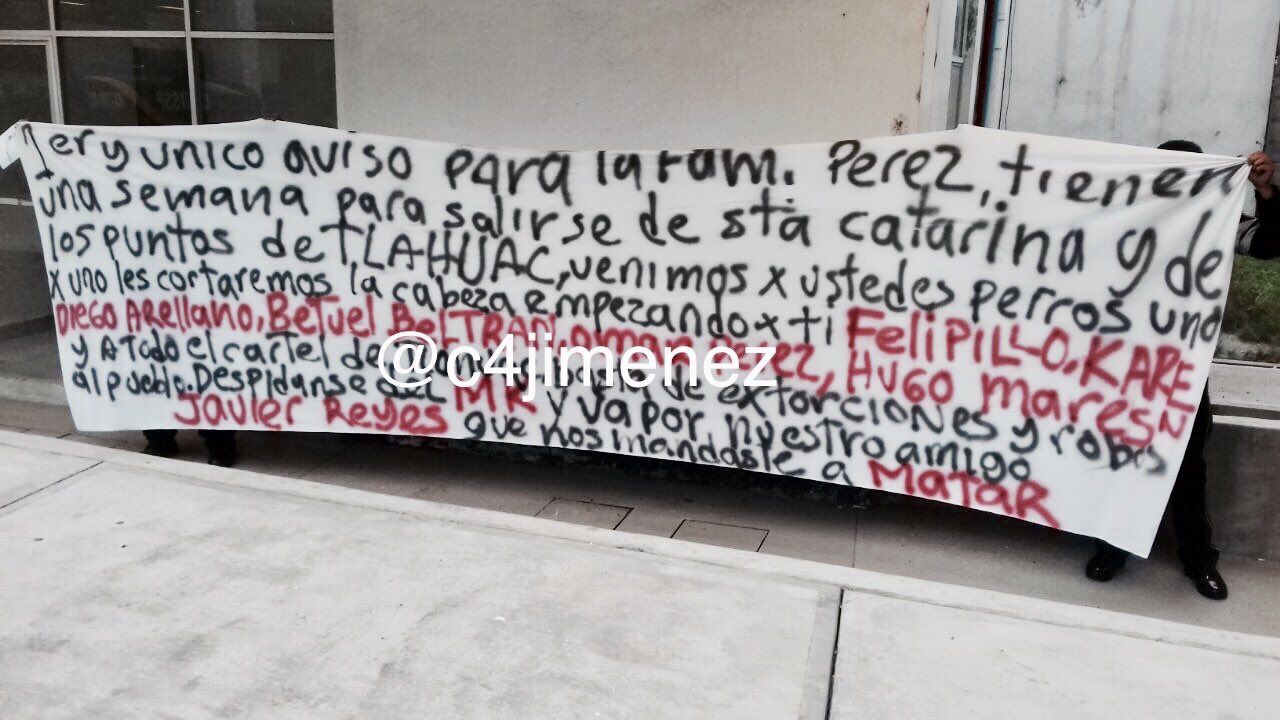 1er y unico aviso para la Fam. Perez, tienen
una semana para salirse de sta catarina y de
los puntos de TLAHUAC, venimos x ustedes perros uno
x uno les cortaremos la cabeza empezando x ti FeliPILLO, KARE
DIEGO Arellano, BeTuel BeLTRAN, omar Perez, HUGO maresN
y A Todo el cartel de de extorciones y robos
al pueblo. Despidanse del MR y va por nuestro amigo
Javier Reyes que nos mandaste a MATAR
@c4jimenez